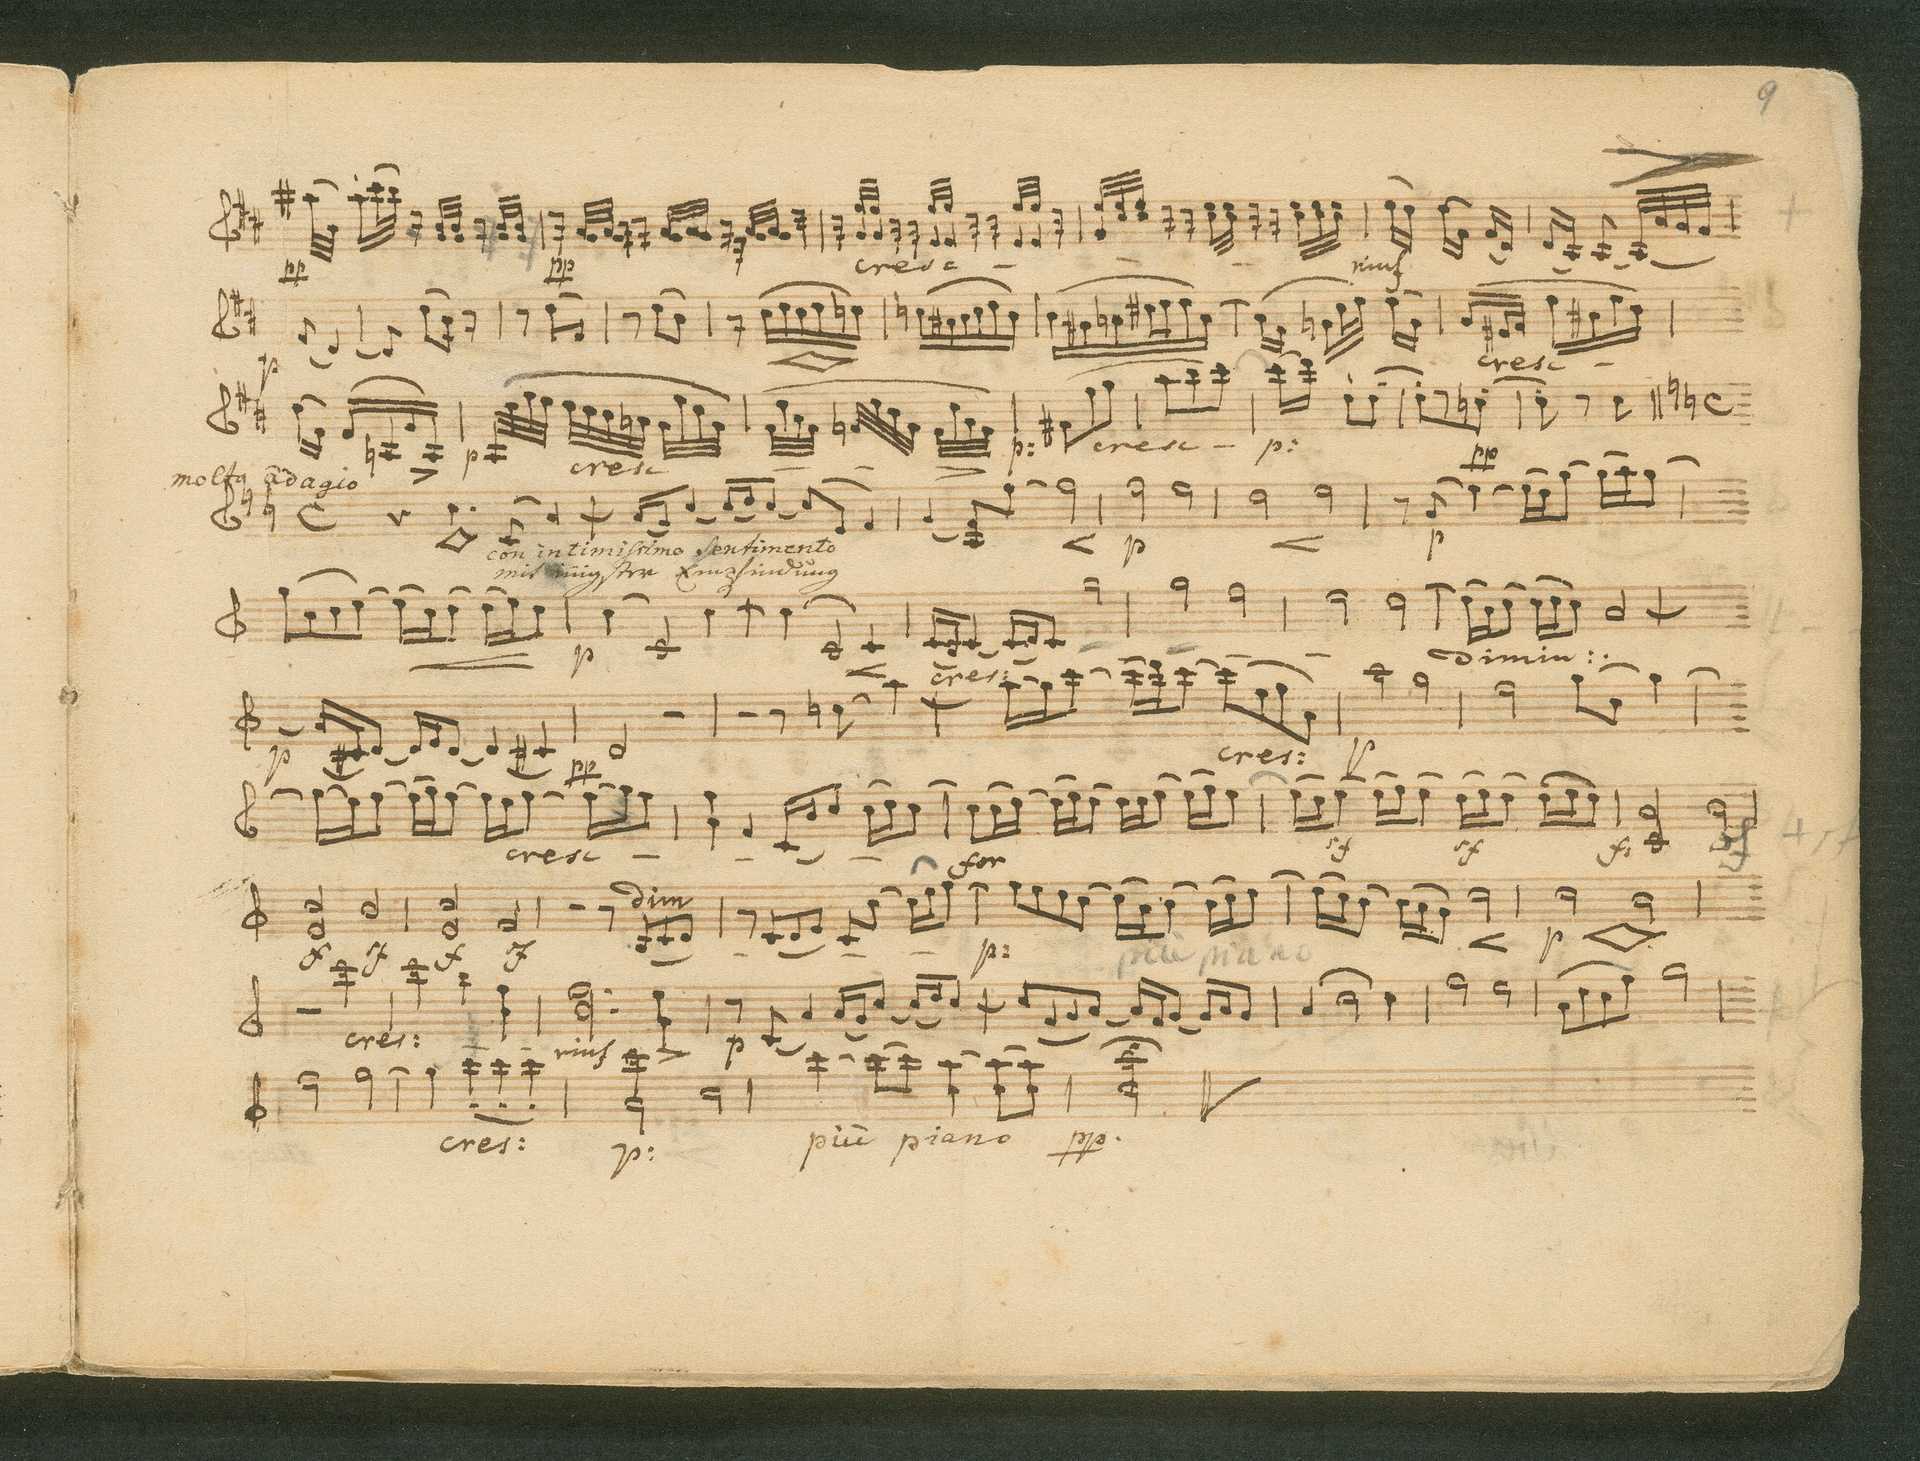 9
pp pp cresc - - - rinf
p cresc -
p cresc - - p: cresc - p: pp
molto adagio
p p
con intimissimo sentimento
mit innigster Empfindung
p cres: - - - - dimin :.
p pp cres: p
cresc - - - for sf sf f: sf
dim
sf sf sf sf - - - p: più piano p
cres: rinf p
cres: p: più piano pp.